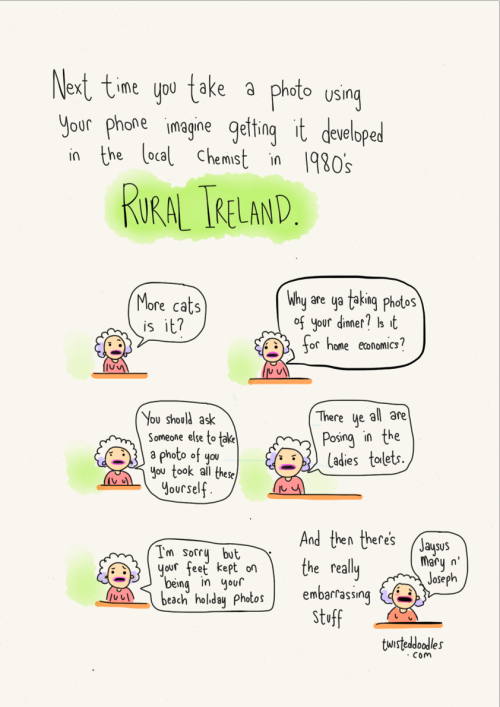 Next time you take a photo using
your phone imagine getting it developed
in the local chemist in 1980's
RURAL IRELAND.
More cats
is it?
Why are ya taking photos
of your dinner? Is it
for home economics?
You should ask
someone else to take
a photo of you
you took all these
yourself.
There ye all are
posing in the
ladies toilets.
I'm sorry but
your feet kept on
being in your
beach holiday photos
And then there's
the really
embarrassing
stuff
Jaysus
Mary n'
Joseph
twisteddoodles
.com